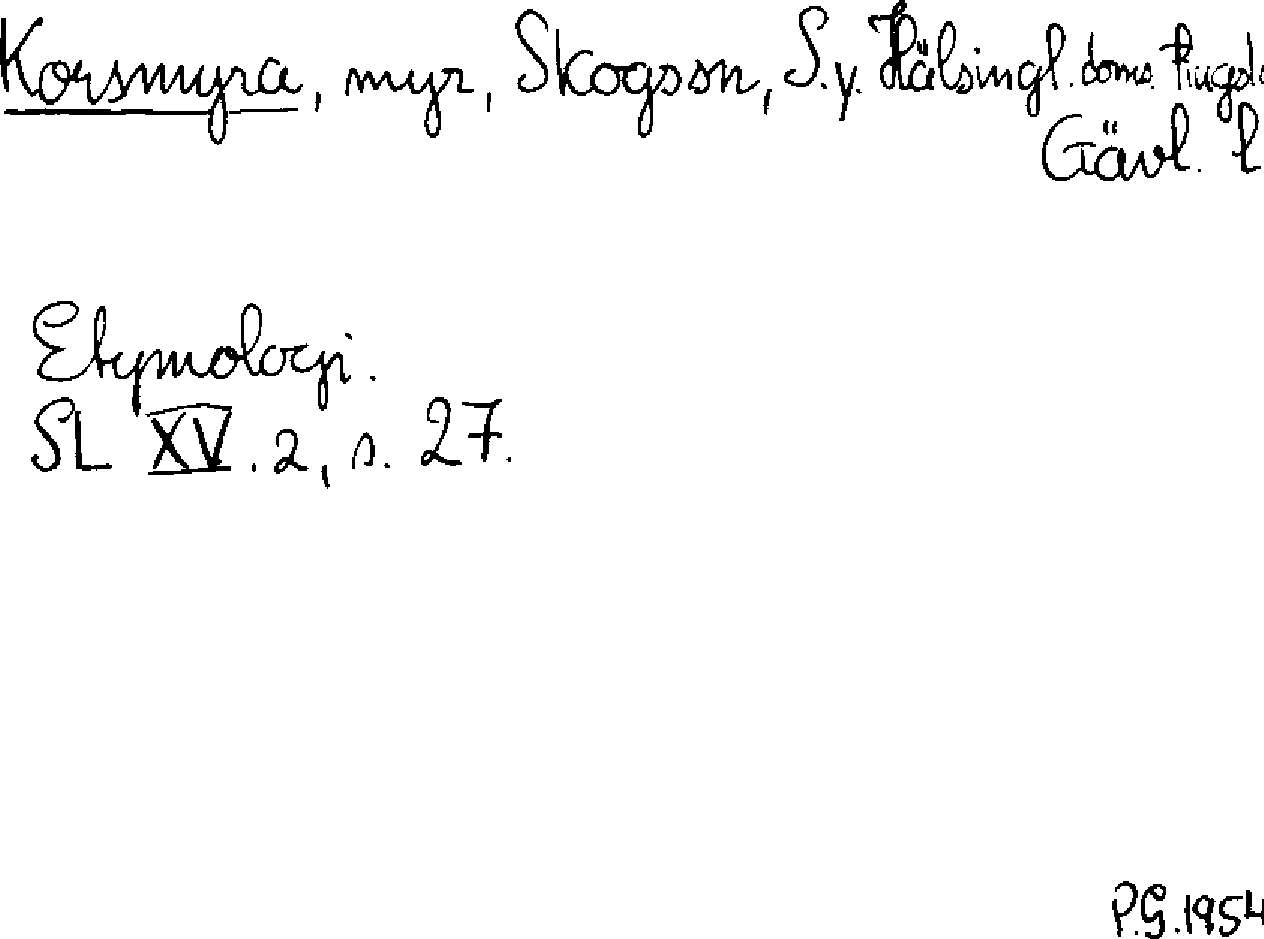 Korsmyra, myr, Skogs sn, S.v. Hälsingl. doms. tingsl.
Gävl. l
Etymologi.
SL XV. 2, s. 27.
P.G. 1954